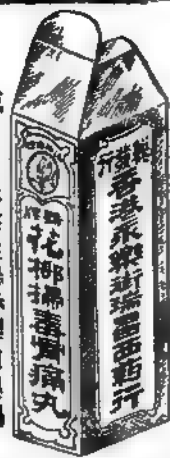 總發行
香港永樂街瑞昌西藥行
花柳掃毒骨痛丸